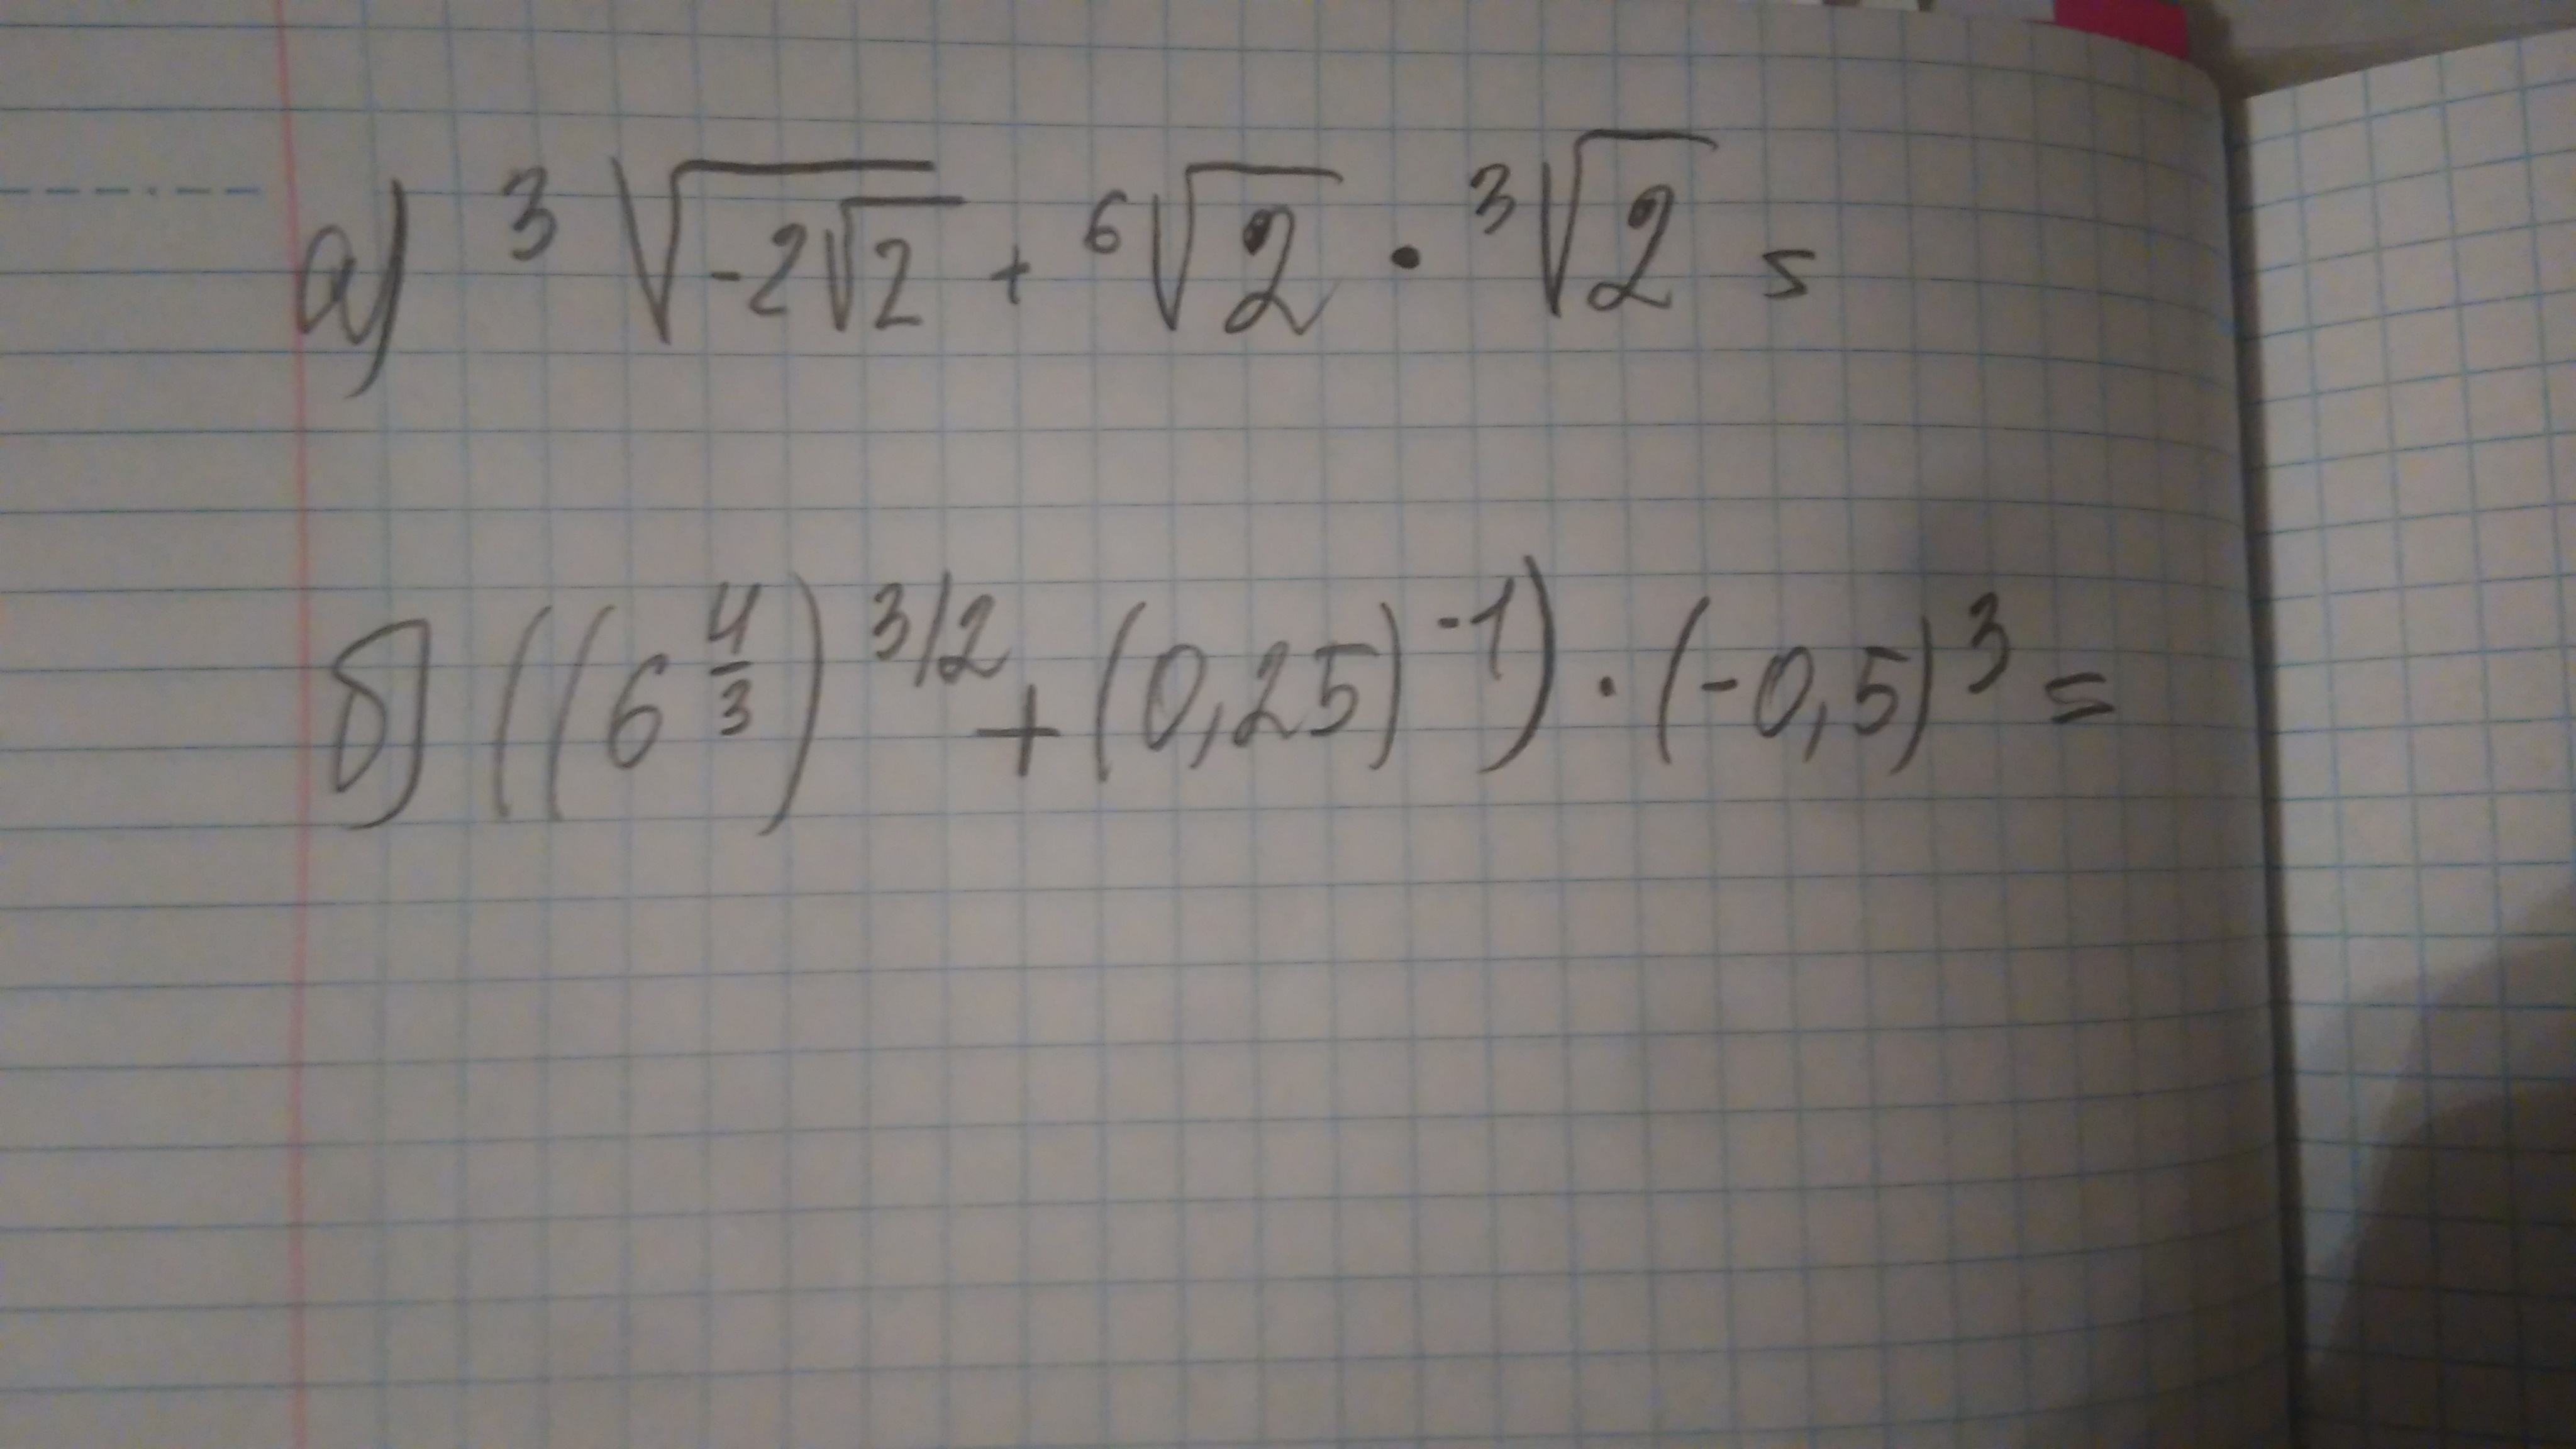 а) ³√(-2√2) + ⁶√2 · ³√2 =
б) ((6^(4/3))^(3/2) + (0,25)^(-1)) · (-0,5)³ =